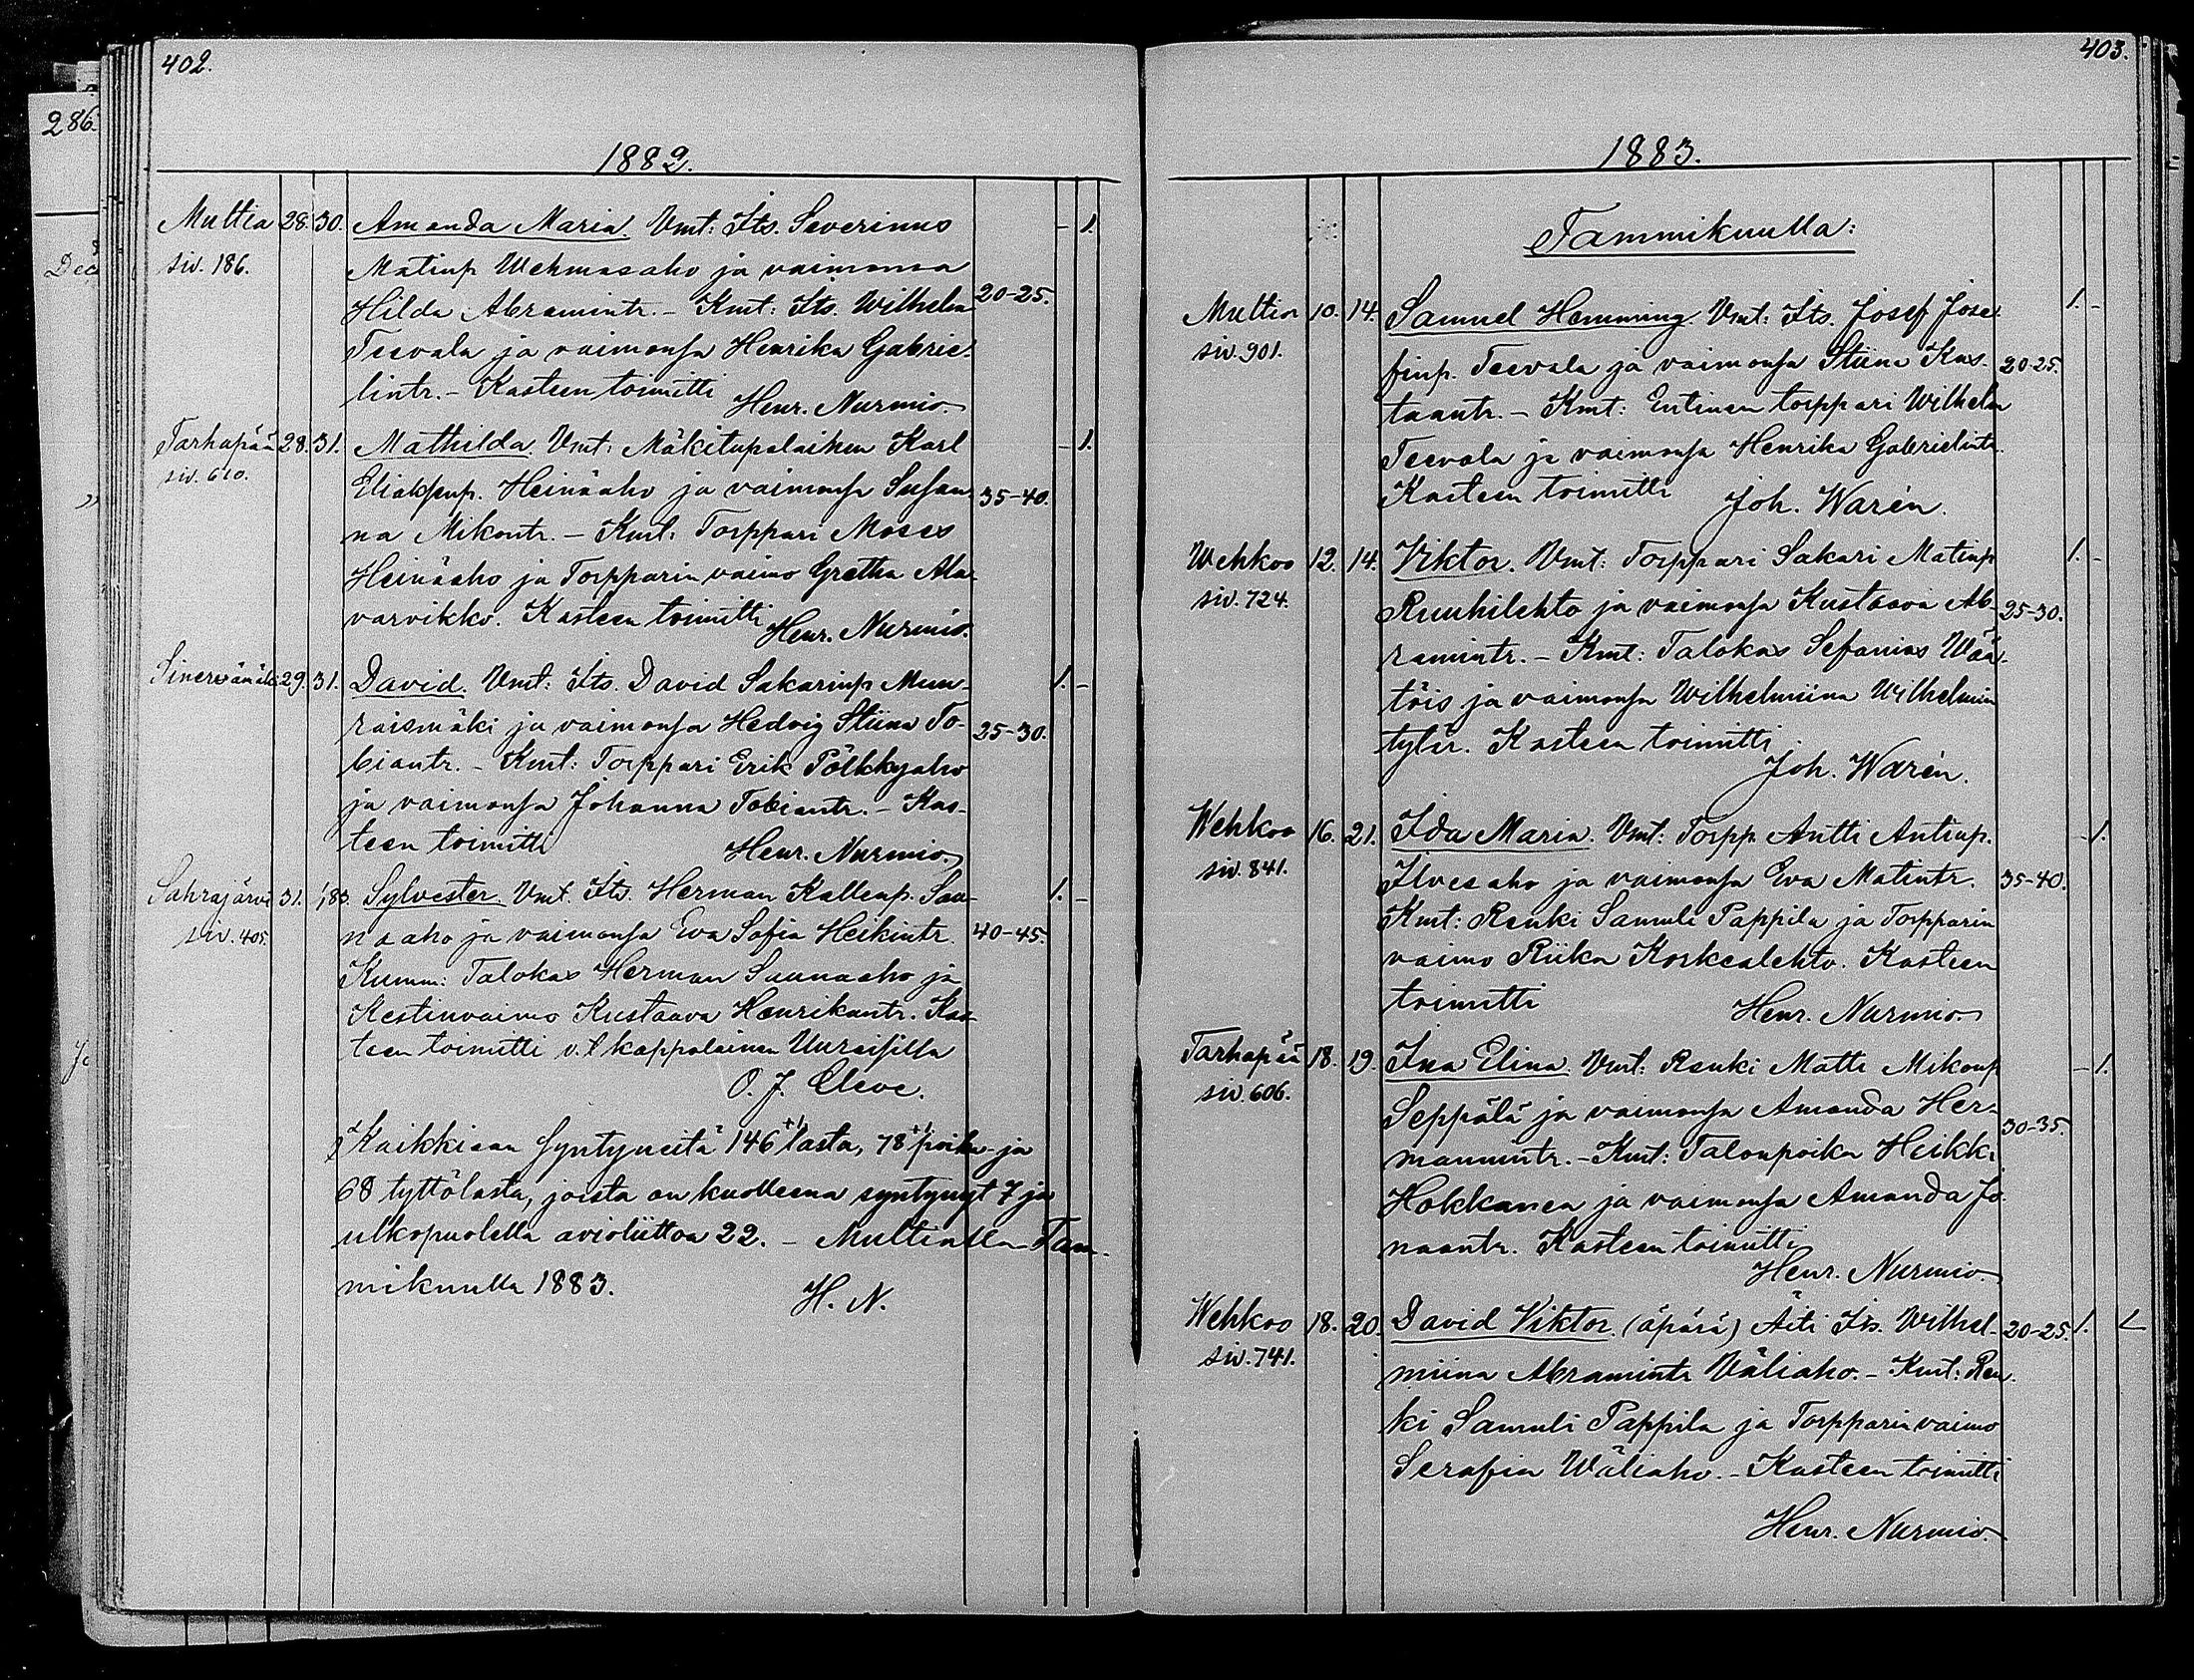 402.
286.
1882.
Multia 28. 30. Amanda Maria. Vmt: Its. Severinus — 1.
siv. 186. Matinp. Wehmasaho ja vaimonsa
Hilda Abramintr. – Kmt: Its. Wilhelm 20-25.
Teevala ja vaimonsa Henrika Gabrie-
lintr. – Kasteen toimitti Henr. Nurmio.
Tarhapää 28. 31. Mathilda. Vmt: Mäkitupalainen Karl — 1.
siv. 610. Eliaksenp. Heinäaho ja vaimonsa Susan- 35-40.
na Mikontr. – Kmt: Torppari Moses
Heinäaho ja Torpparin vaimo Gretha Ala-
varvikko. Kasteen toimitti Henr. Nurmio.
Sinervämäki 29. 31. David. Vmt: Its. David Sakarinp. Muu- 1. —
raismäki ja vaimonsa Hedvig Stiina To- 25-30.
biantr. – Kmt: Torppari Erik Pölkkyaho
ja vaimonsa Johanna Tobiantr. – Kas-
teen toimitti Henr. Nurmio.
Sahrajärvi 31. 1/83. Sylvester. Vmt. Its. Herman Kallenp. Sau- 1. —
siv. 405. naaho ja vaimonsa Eva Sofia Heikintr. 40-45.
Kumm: Talokas Herman Saunaaho ja
Kestinvaimo Kustaava Henrikantr. Kas-
teen toimitti v.t kappalainen Uuraisilla
O. J. Cleve.
Kaikkiaan syntyneitä 146 +1 lasta, 78 +1 poika- ja
68 tyttölasta, joista on kuolleena syntynyt 7 ja
ulkopuolella avioliittoa 22. – Multialla Tam-
mikuulla 1883. H. N.
403.
1883.
Tammikuulla:
Multia 10. 14. Samuel Hemming. Vmt: Its. Josef Jose- 1. —
siv. 901. finp. Teevala ja vaimonsa Stiina Kus- 20-25.
taantr. – Kmt: Entinen torppari Wilhelm
Teevala ja vaimonsa Henrika Gabrielintr.
Kasteen toimitti Joh. Warén.
Wehkoo 12. 14. Viktor. Vmt: Torppari Sakari Matinp. 1. —
siv. 724. Ruuhilehto ja vaimonsa Kustaava Ab- 25-30.
ramintr. – Kmt: Talokas Sefanias Wää-
töis ja vaimonsa Wilhelmiina Wilhelmin
tytär. Kasteen toimitti
Joh. Warén.
Wehkoo 16. 21. Ida Maria. Vmt: Torpp. Antti Antinp. — 1.
siv. 841. Ilvesaho ja vaimonsa Eva Matintr. 35-40.
Kmt: Renki Samuli Pappila ja Torpparin
vaimo Riika Koskealehto. Kasteen
toimitti Henr. Nurmio.
Tarhapää 18. 19. Ina Elina. Vmt: Renki Matti Mikonp. — 1.
siv. 606. Seppälä ja vaimonsa Amanda Her- 30-35.
manintr. – Kmt: Talonpoika Heikki
Hokkanen ja vaimonsa Amanda Jo-
naantr. Kasteen toimitti
Henr. Nurmio.
Wehkoo 18. 20. David Viktor. (äpärä) Äiti Its. Wilhel- 20-25. 1.
siv. 741. miina Abramintr Väliaho. – Kmt: Ren-
ki Samuli Pappila ja Torpparin vaimo
Serafia Wäliaho. – Kasteen toimitti
Henr. Nurmio.